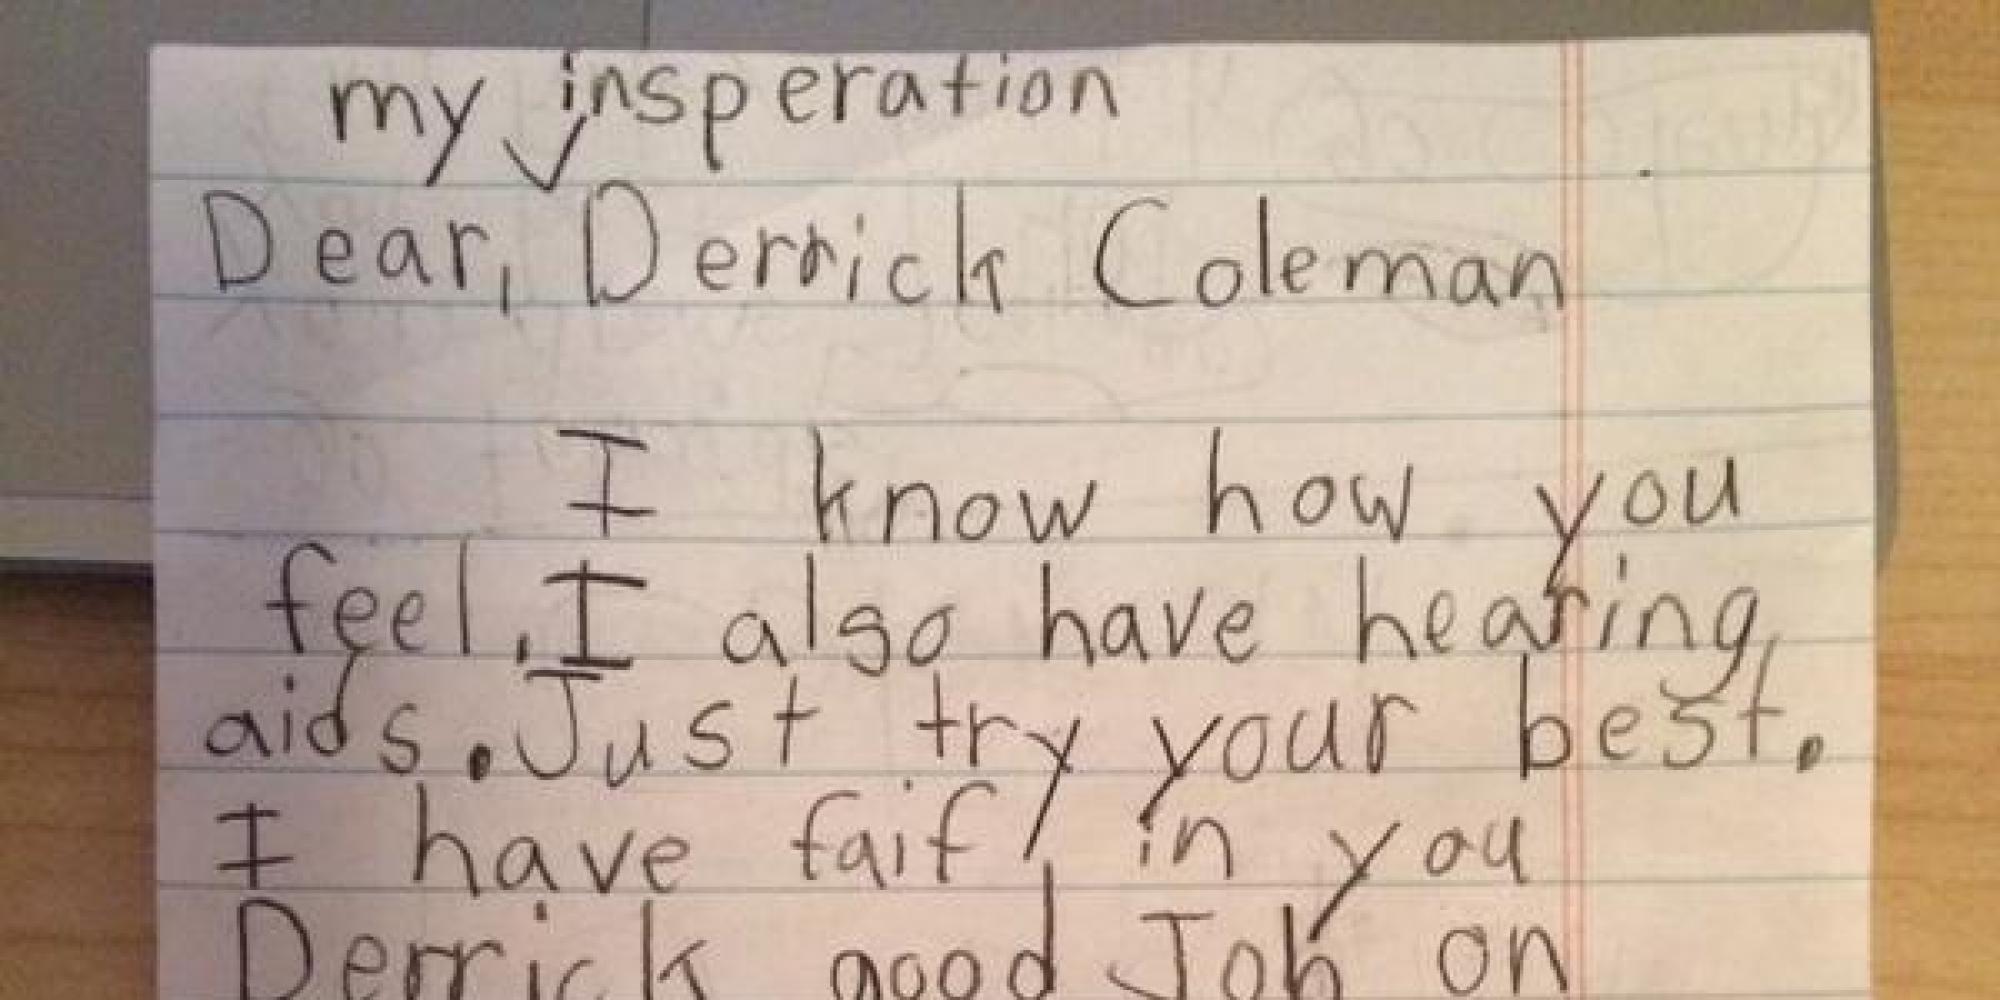 my insperation
Dear, Derrick Coleman
I know how you
feel. I also have hearing
aids. Just try your best.
I have faif in you
Derrick good Job on